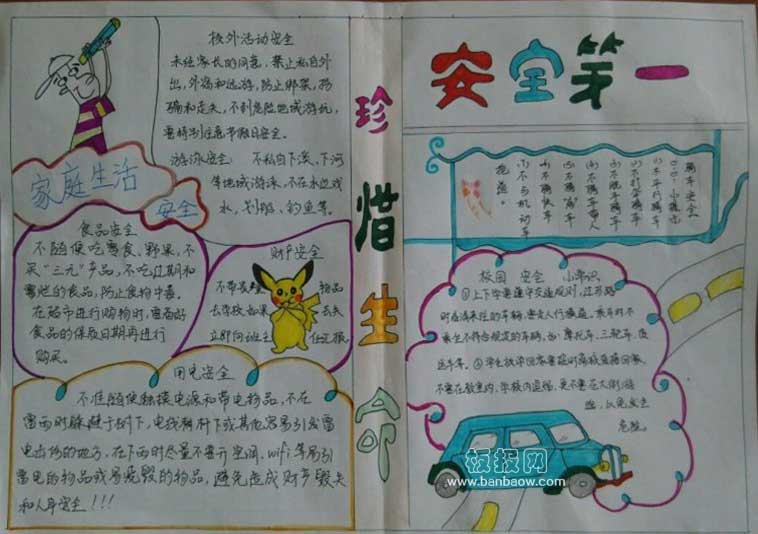 校外活动安全
未经家长的同意,禁止私自外
出,外宿和远游,防止绑架,拐
骗和走失,不到危险地域游玩,
要特别注意节假日安全。
游泳安全: 不私自下溪、下河
等地域游泳,不在水边戏
水,划船,钓鱼等。
家庭生活
安全
食品安全
不随便吃零食、野果,不
买“三无”产品,不吃过期和
霉烂的食品,防止食物中毒。
在超市进行购物时,要看好
食品的保质日期再进行
购买。
财产安全
不带贵重 物品
去学校如果 丢失
立即向班主 任汇报
用电安全
不准随便触摸电源和带电物品,不在
雷雨时躲避于树下,电线杆杆下或其他容易引发雷
电击伤的地方,在下雨时尽量不要开空调、wifi等易引
雷电的物品或易烧毁的物品,避免造成财产毁失
和人身安全!!!
珍惜生命
安全第一
骑车安全
小提示
(1)不平行骑车
(2)不打伞骑车
(3)不脱手骑车
(4)不骑车带人
(5)不骑病车
(6)不骑快车
(7)不与机动车
抢道。
校园 安全 小常识
①上下学要遵守交通规则,过马路
时看清来往的车辆,要走人行横道,乘车时不
乘坐不符合规定的车辆,如:摩托车、三轮车、货
运车等。②学生放学回家要按时离校直接回家,
不要在教室内,学校内逗留,更不要在大街
以免发生
危险。
板报网
www.banbaow.com